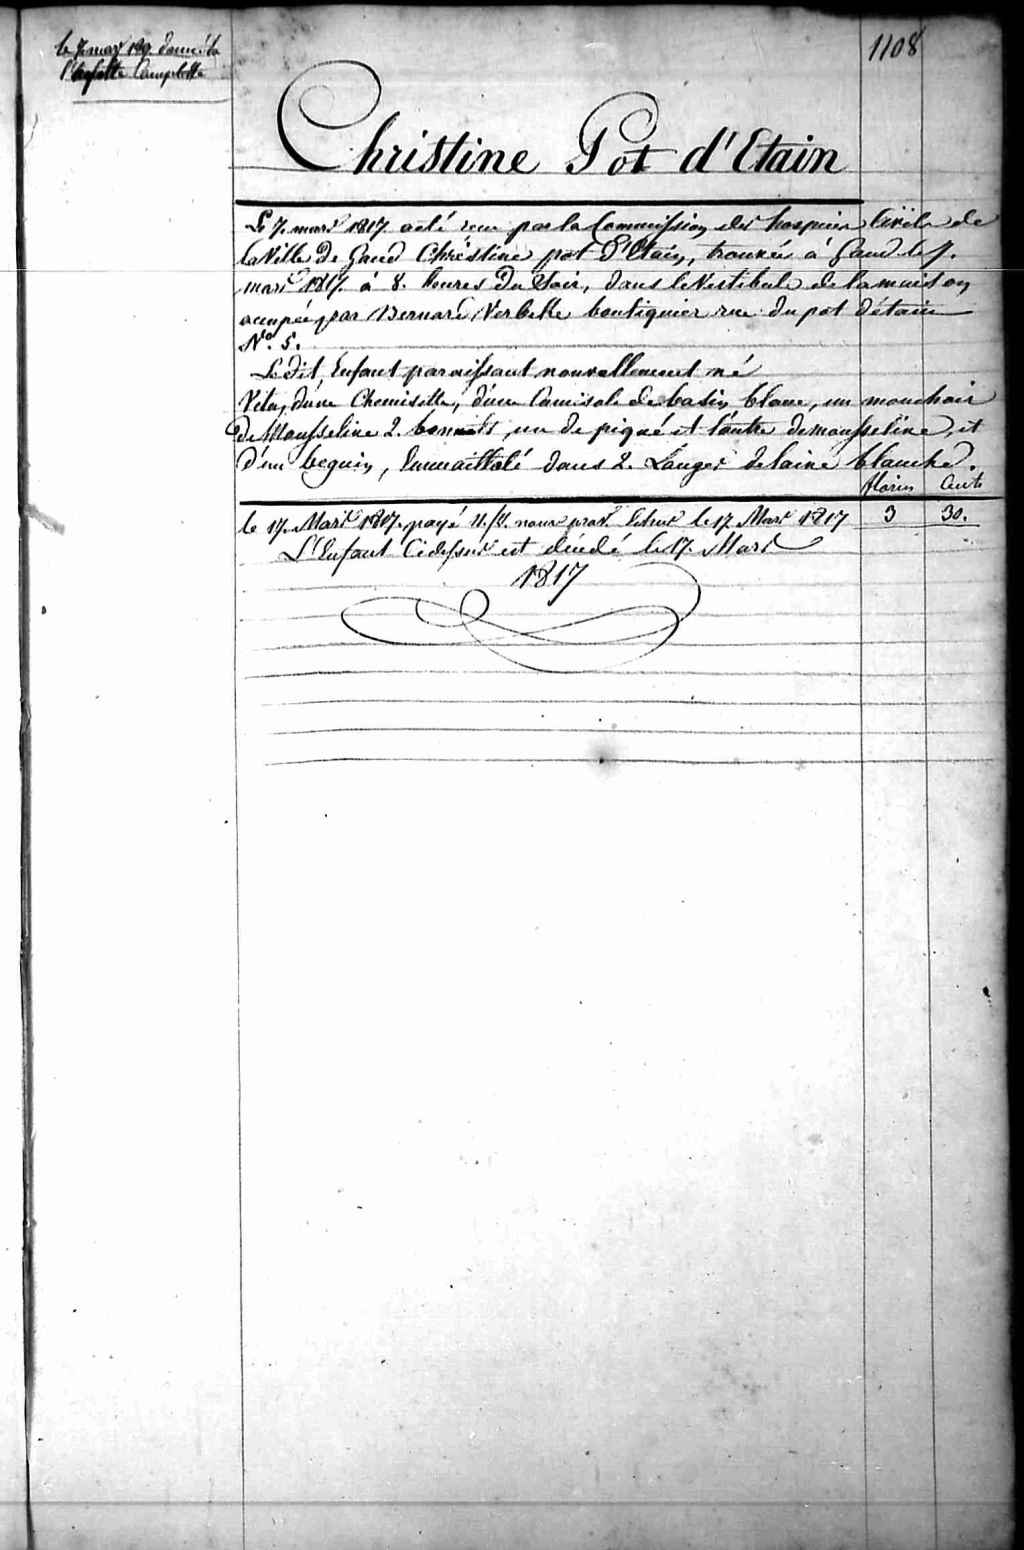 le 7 mars 1817 donné la
l'layette Complette
1108
Christine Pot d'Etain
Le 7. mars 1817. a eté reçu par la Commission des hospices Civils de
la Ville de Gand Christine pot D'Etain, trouvée à Gand le 7.
mars 1817. à 8. heures Du Soir, dans le Vestibule de la maison
occupée par Bernard Verbeke boutiquier rue du pot d'étain
N.º 5.
Le dit Enfant paroissant nouvellement né
Vetu, d'une Chemisette, d'une Camisole de basin blanc, un mouchoir
de Mousseline 2. bonnets, un de piqué et l'autre de mousseline, et
d'un beguin, Emmaillolé dans 2. Langes de laine blanche.
florins Cents
le 17. Mars 1817. payé echus le 17. Mars 1817 3 30.
L'Enfant Cidessus est décédé le 17. Mars
1817